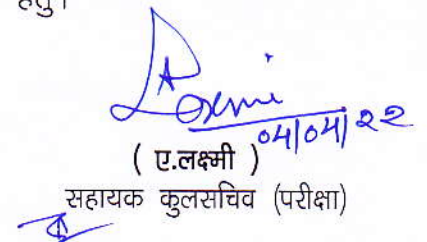 हेतु।
04/04/22
( ए.लक्ष्मी )
सहायक कुलसचिव (परीक्षा)